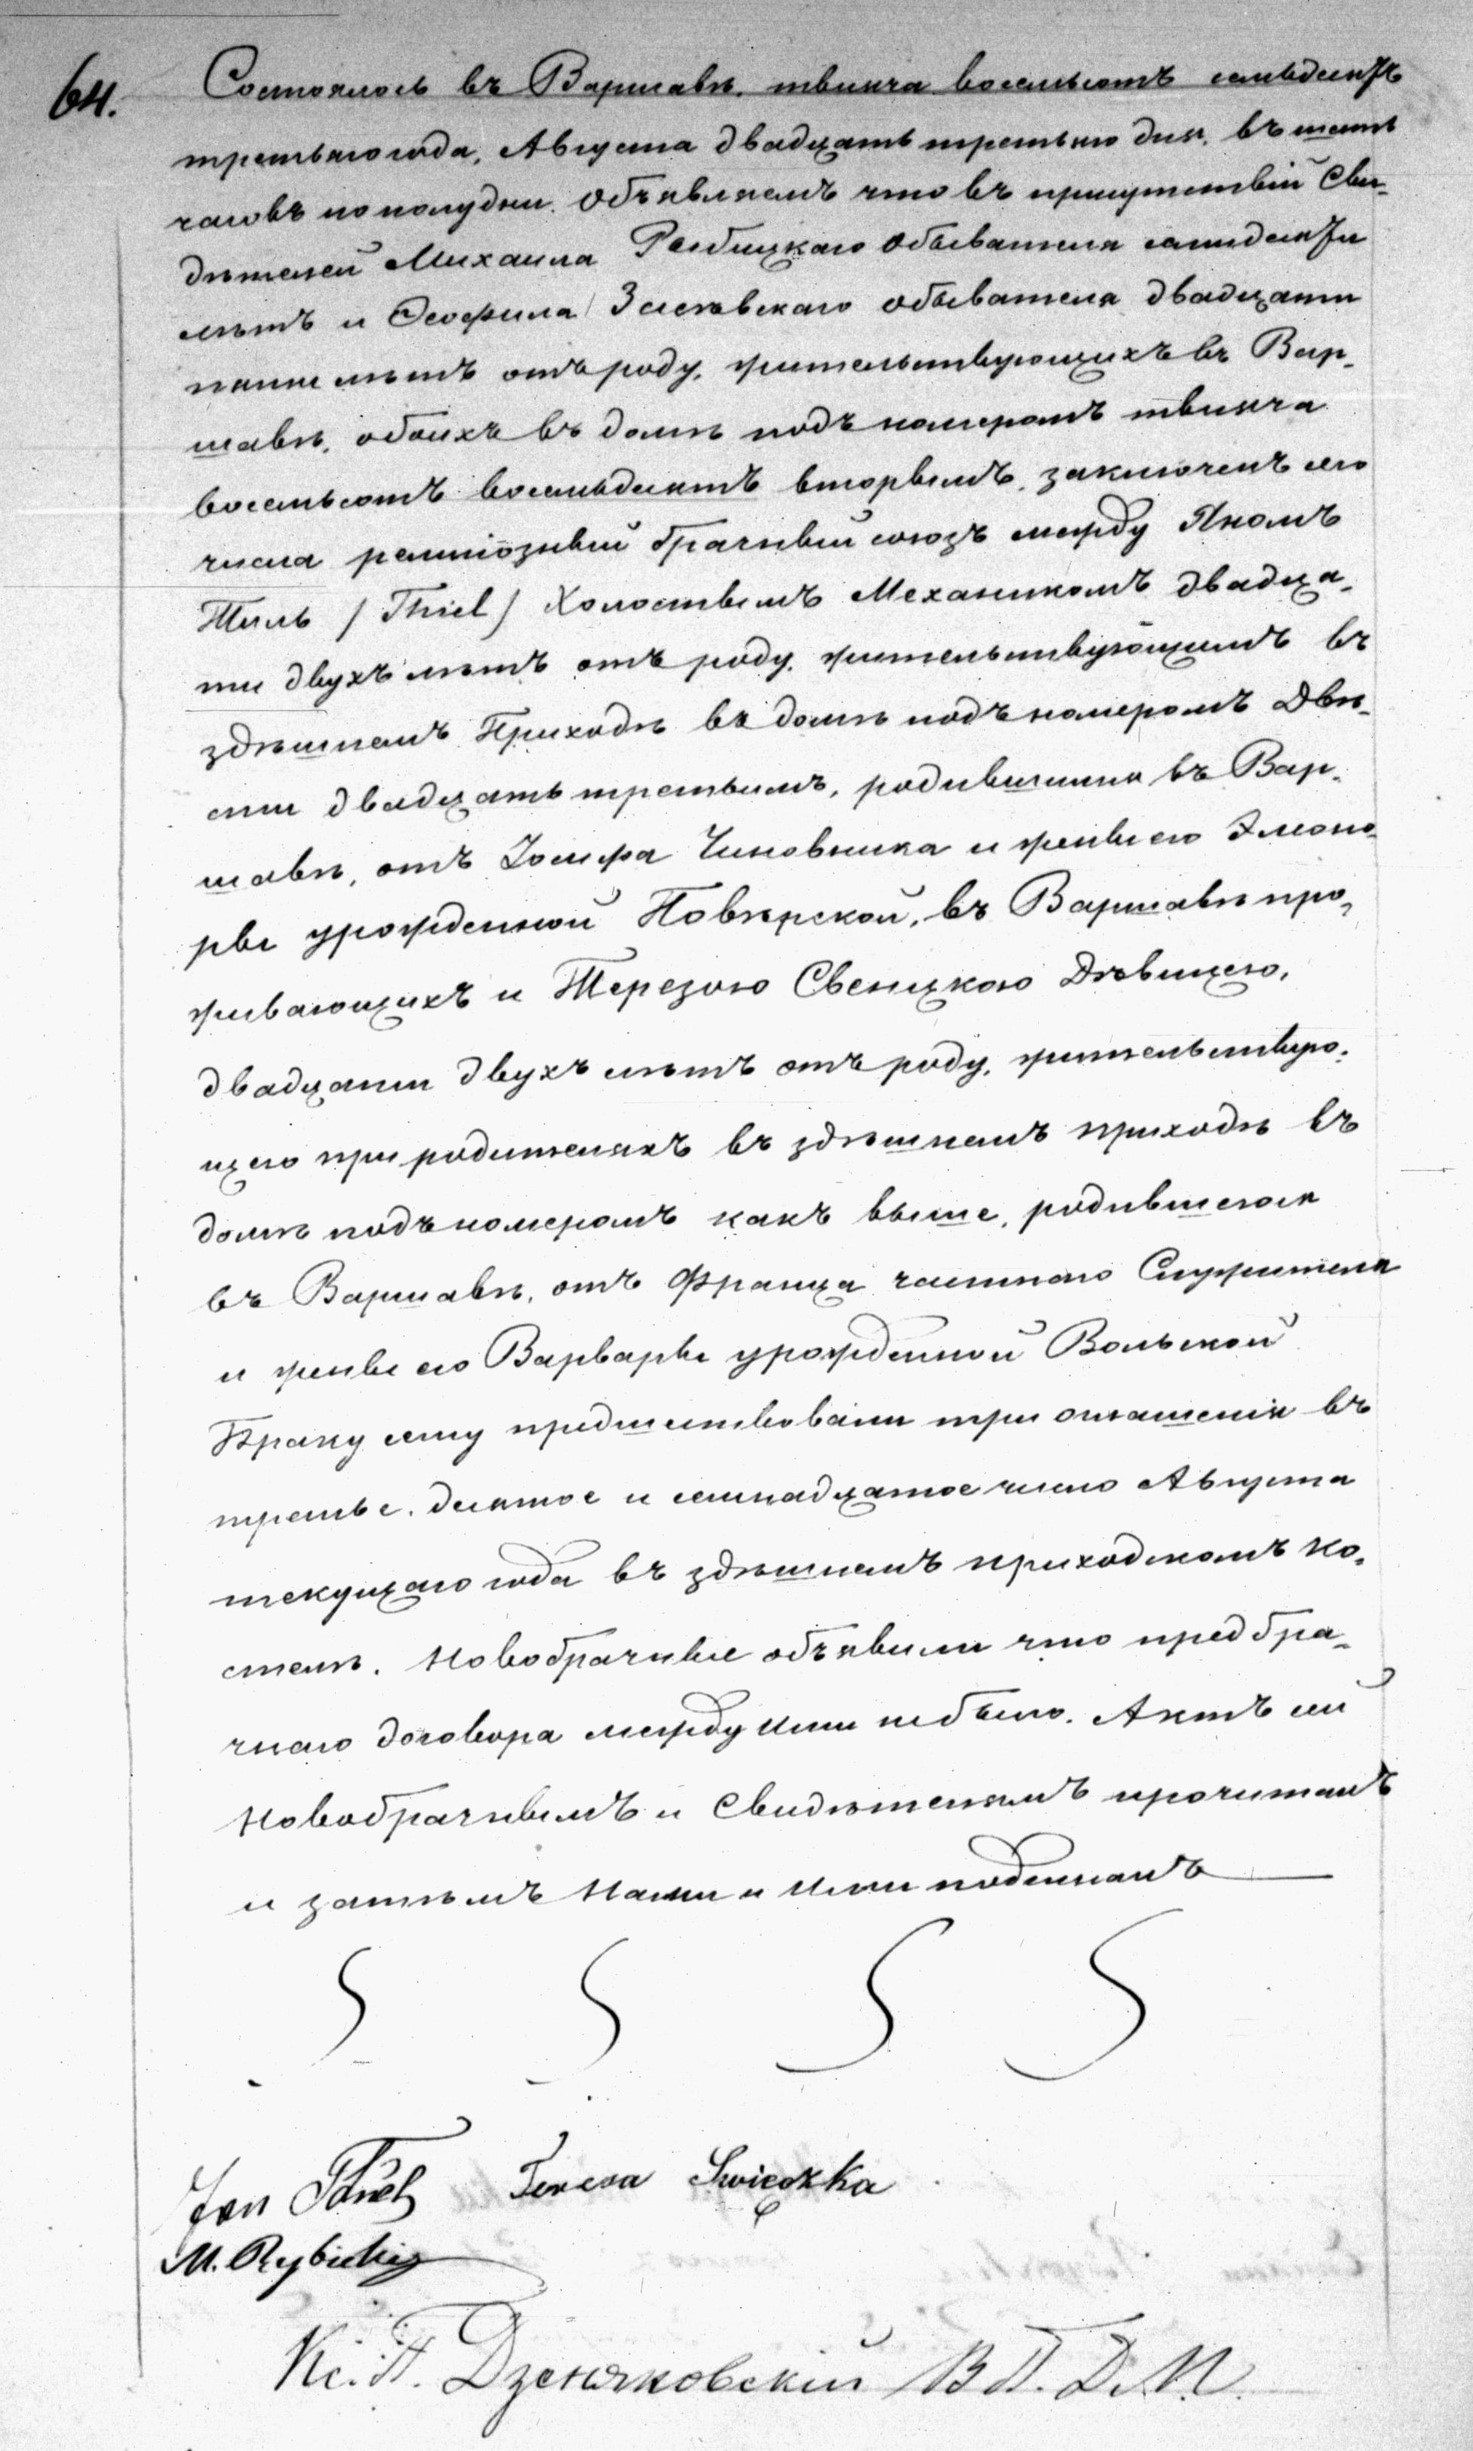 64. Состоялось въ Варшавѣ, тысяча восемьсотъ семьдесятъ
третьяго года, Августа двадцать третьяго дня, въ шесть
часовъ по полудни. Объявляемъ что въ присутствіи Сви-
дѣтелей Михаила Рыбицкаго обывателя семидесяти
лѣтъ и Ѳеофила обывателя двадцати
пяти лѣтъ отъ роду, жительствующихъ въ Вар-
шавѣ, обоихъ въ домѣ подъ номеромъ тысяча
восемьсотъ восемьдесятъ вторымъ, заключенъ сего
числа религіозный брачный союзъ между Яномъ
Тиль /Thiel/ Холостымъ Механикомъ двадца-
ти двухъ лѣтъ отъ роду, жительствующимъ въ
здѣшнемъ Приходѣ въ домѣ подъ номеромъ Двѣ-
сти двадцать третьимъ, родившимся въ Вар-
шавѣ, отъ Іосифа Чиновника и жены его Элеоно-
ры урожденной Повѣрской, въ Варшавѣ про-
живающихъ и Терезою Свенцкою Дѣвицею,
двадцати двухъ лѣтъ отъ роду, жительствую-
щею при родителяхъ въ здѣшнемъ приходѣ въ
домѣ подъ номеромъ какъ выше, родившеюся
въ Варшавѣ, отъ Франца частнаго Служителя
и жены его Варвары урожденной Вольской
Браку сему предшествовали три оглашенія въ
третье, десятое и семнадцатое число Августа
текущаго года въ здѣшнемъ приходскомъ Ко-
стелѣ. Новобрачные объявили что предбра-
чнаго договора между ими небыло. Актъ сей
Новобрачнымъ и Свидѣтелямъ прочитанъ
и затѣмъ Нами и Ими подписанъ
Jan Thiel Teresa Swięczka
M. Rybicki
Кс. П. Дзеняковскій В. П. Д. М.